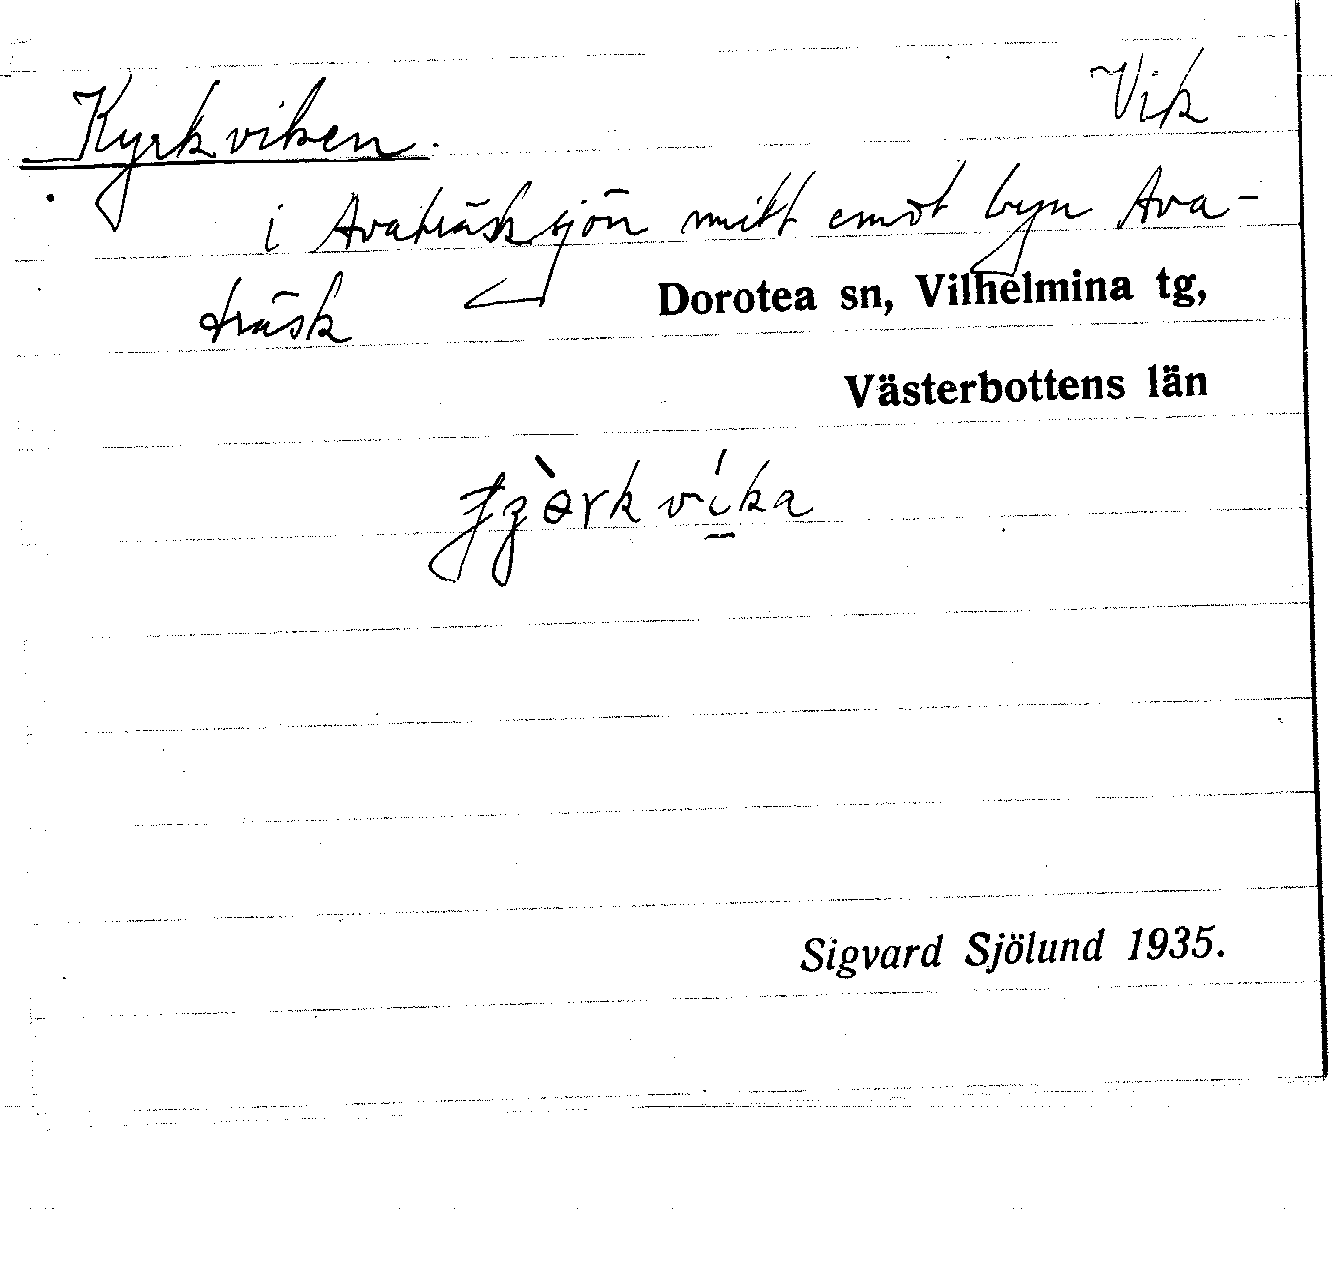 Vik
Kyrkviken.
i Avaträsksjön mitt emot byn Ava-
träsk
Dorotea sn, Vilhelmina tg,
Västerbottens län
Sigvard Sjölund 1935.